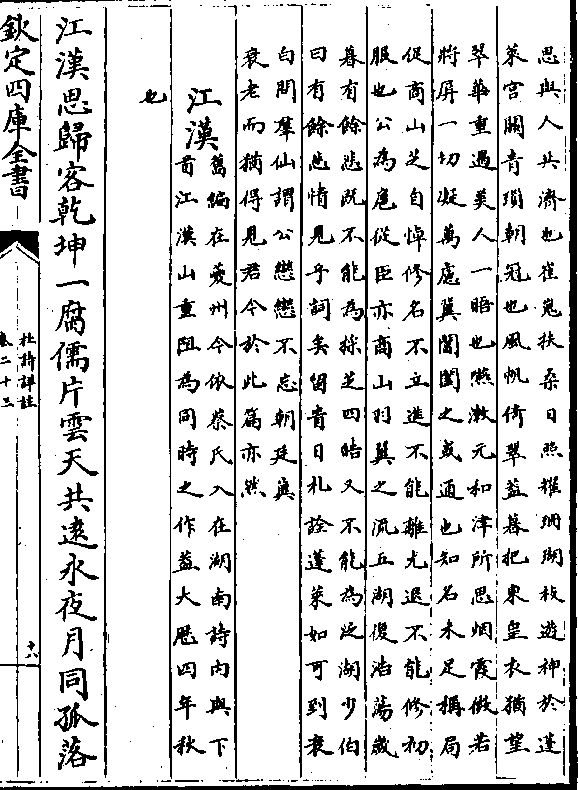 思與人共濟也崔嵬扶桑日照耀珊瑚枝遊神於蓬
萊宮闕青瑣朝冠也風帆倚翠蓋暮把東皇衣猶望
翠華重過美人一晤也嚥漱元和津所思烟霞微若
將屏一切凝萬慮冀閶闔之或通也知名未足稱局
促商山芝自悼修名不立進不能離尤退不能修初
服也公為扈從臣亦商山羽翼之流五湖復浩蕩歲
暮有餘悲既不能為採芝四皓又不能為泛湖少伯
曰有餘悲情見乎詞矣留青日札詮蓬萊如可到衰
白問羣仙謂公戀戀不忘朝廷與
衰老而猶得見君今於此篇亦然
江漢
舊編在夔州今依蔡氏入在湖南詩內與下
首江漢山重阻為同時之作蓋大厯四年秋
也
江漢思歸客乾坤一腐儒片雲天共遠永夜月同孤落
欽定四庫全書
杜詩詳註
卷二十三
十八